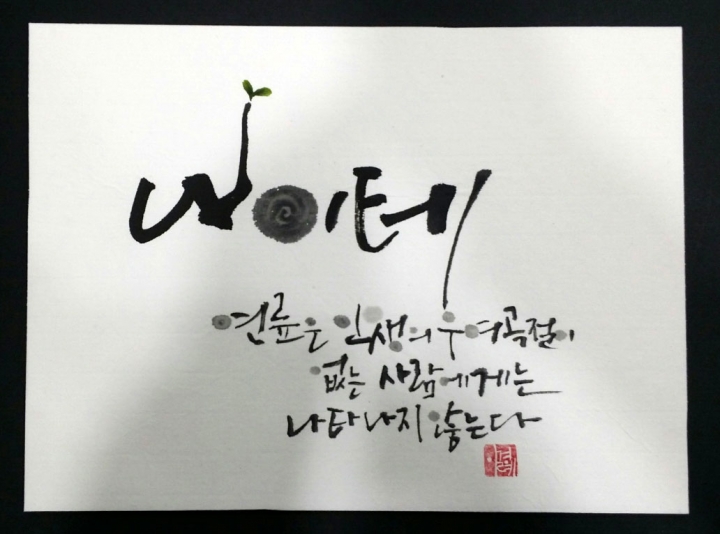 나이테
연륜은 인생의 우여곡절이
없는 사람에게는
나타나지 않는다